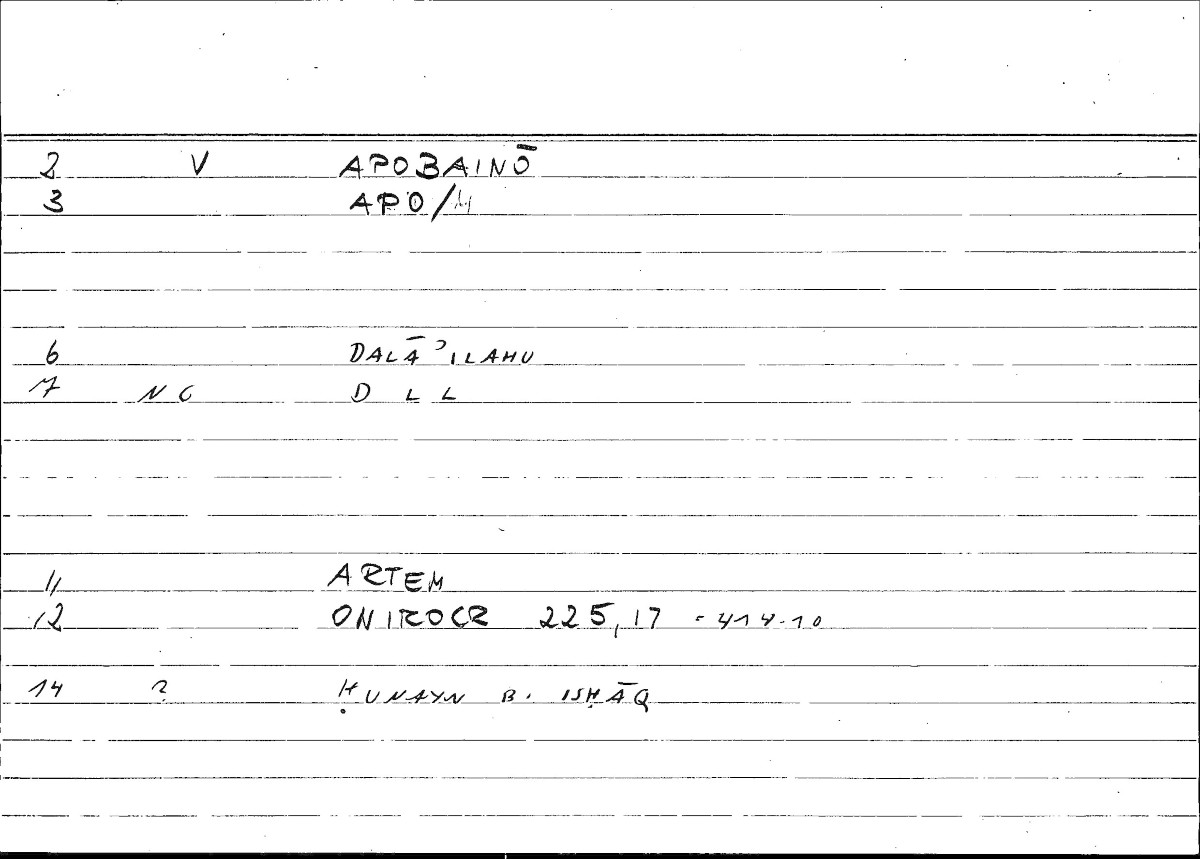 2 V APOBAINŌ
3 APO/
6 DALĀʾILAHU
7 NC D L L
11 ARTEM
12 ONIROCR 225,17 = 414.10
14 ? ḤUNAYN B. ISḤĀQ